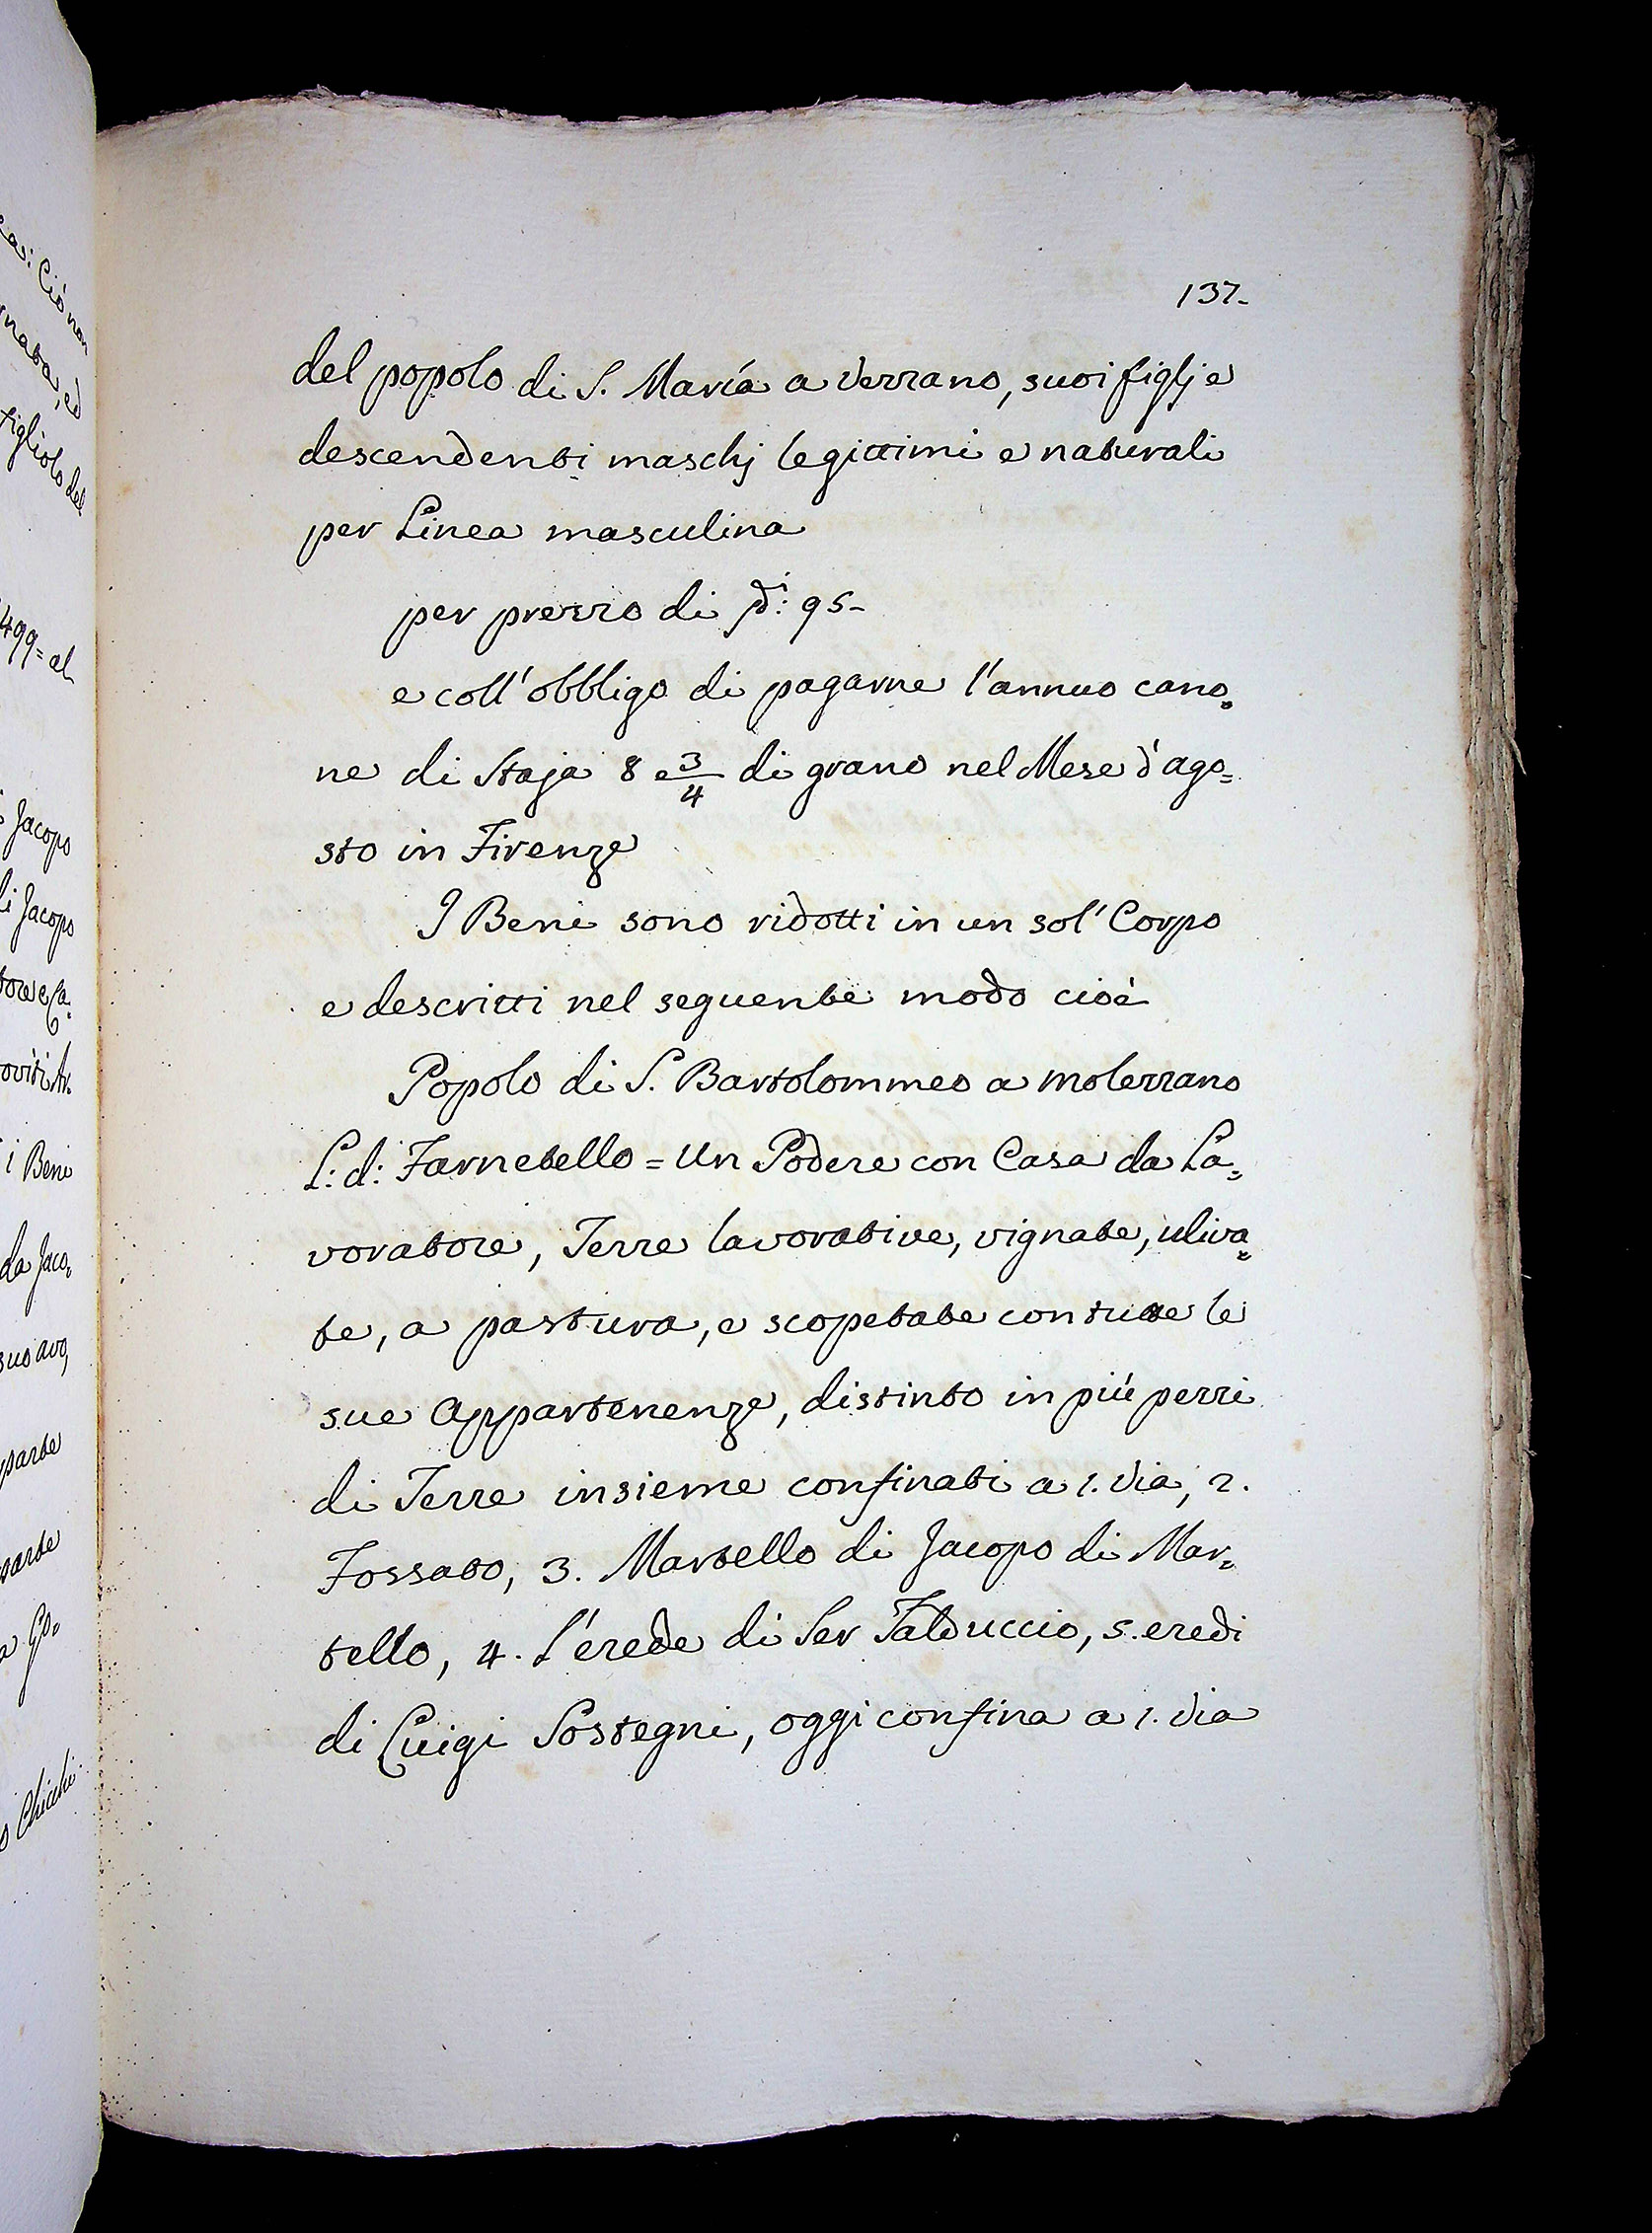 137.
del popolo di S. María a Vezzano, suoi figlj e
descendenti maschj legittimi e naturali
per Linea masculina
per prezzo di 95-
e coll' obbligo di pagarne l'annuo cano=
ne di Staja 8 e 3/4 di grano nel Mese d'ago=
sto in Firenze
I Beni sono ridotti in un sol' Corpo
e descritti nel seguente modo cioè
Popolo di S. Bartolommeo a Molezzano
L: d: Farnetello = Un Podere con Casa da La=
voratore, Terre lavorative, vignate, uliva=
te, a pastura, e scopetate con tutte le
sue Appartenenze, distinto in più pezzi
di Terre insieme confinati a 1. Via, 2.
Fossato, 3. Martello di Jacopo di Mar=
tello, 4. L'erede di Ser Falduccio, 5. eredi
di Luigi Sostegni, oggi confina a 1. Via
Ciò non
figliolo del
499= al
Jacopo
Jacopo
i Beni
da Jaco=
suo avo,
parte
Chicchi